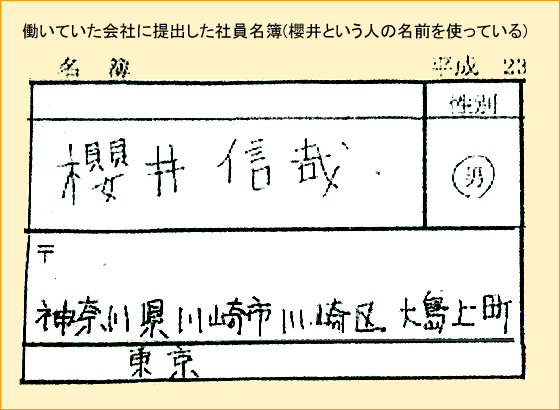 働いていた会社に提出した社員名簿(櫻井という人の名前を使っている)
名 簿 平成 23
性別
櫻井 信哉 男
〒
神奈川県川崎市川崎区大島上町
東京